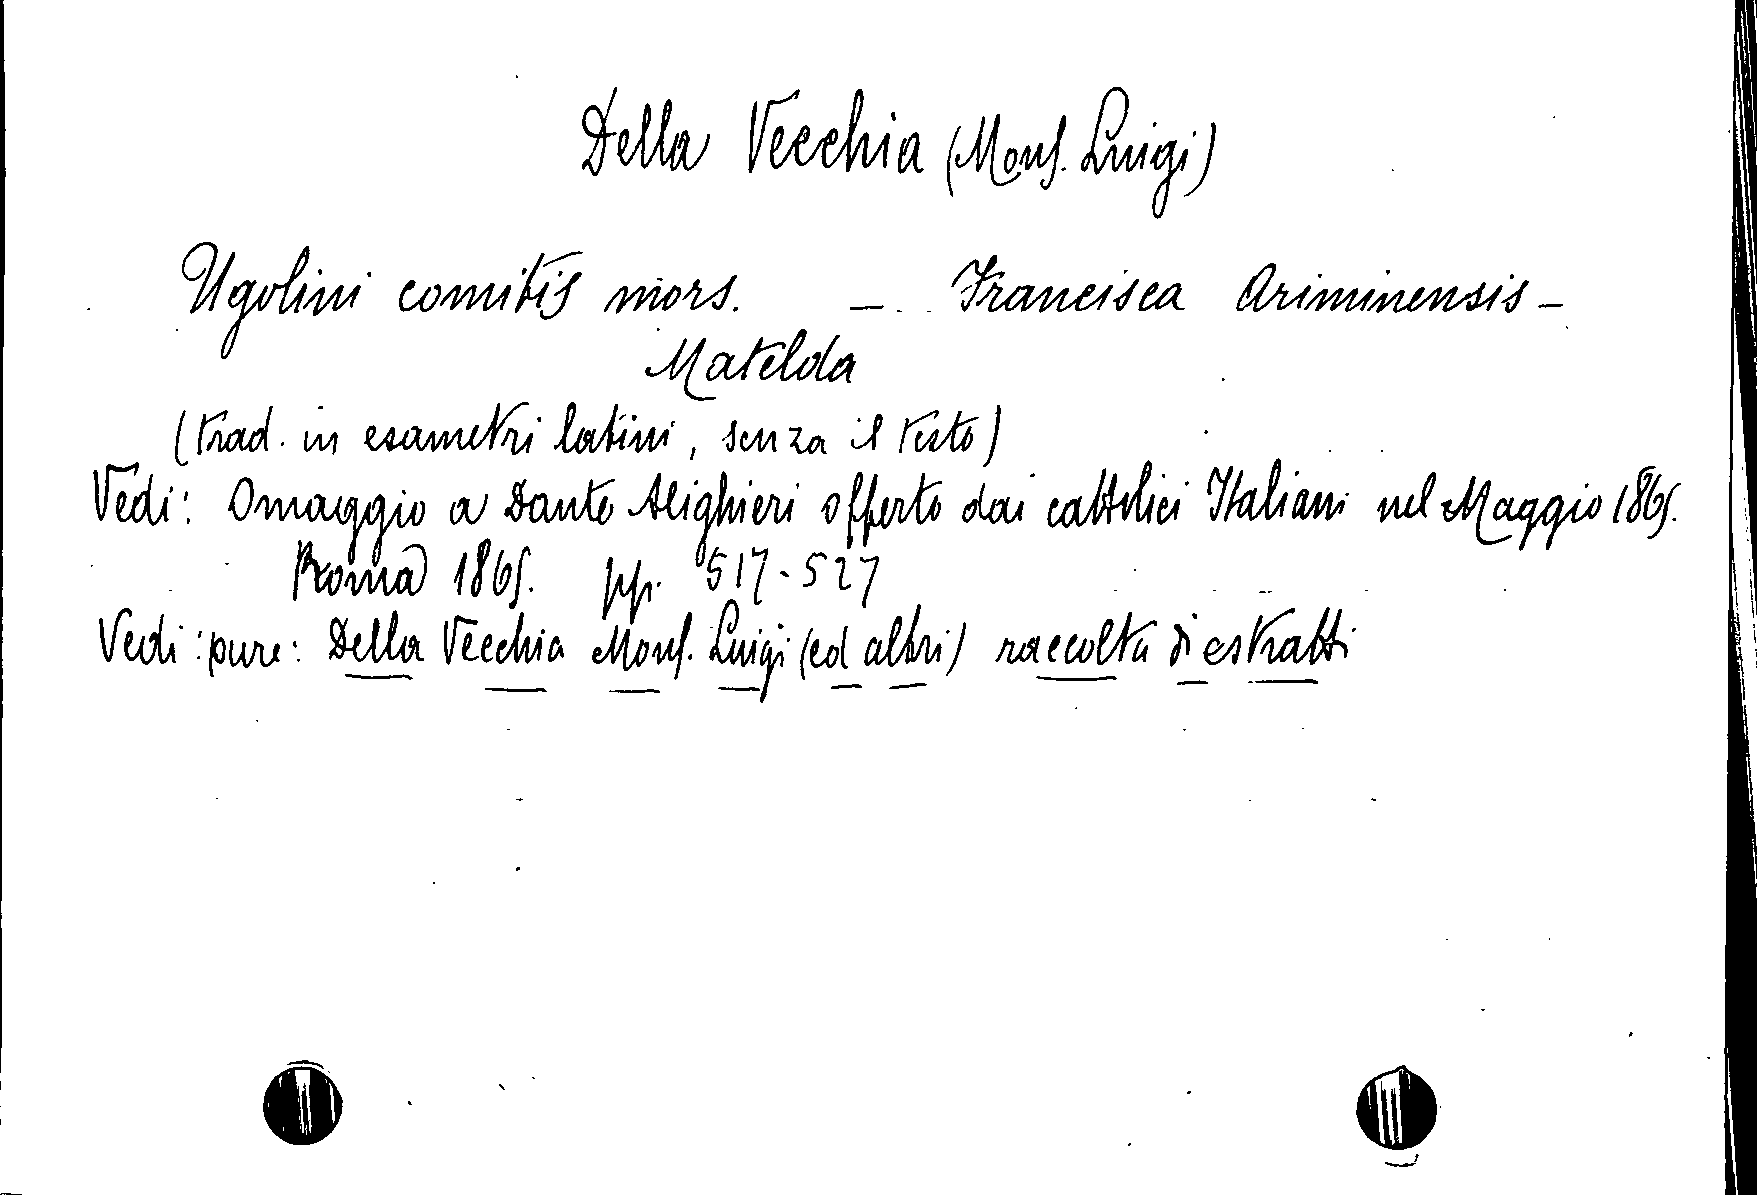 Della Vecchia (Mons. Luigi)
Ugolini comitis mors. – Francisca Ariminensis –
Matelda
(trad. in esametri latini, senza il testo)
Vedi: Omaggio a Dante Alighieri offerto dai cattolici Italiani nel Maggio 1865.
Roma 1865. pp. 517-527
Vedi: pure: Della Vecchia Mons. Luigi (ed altri) raccolta di estratti